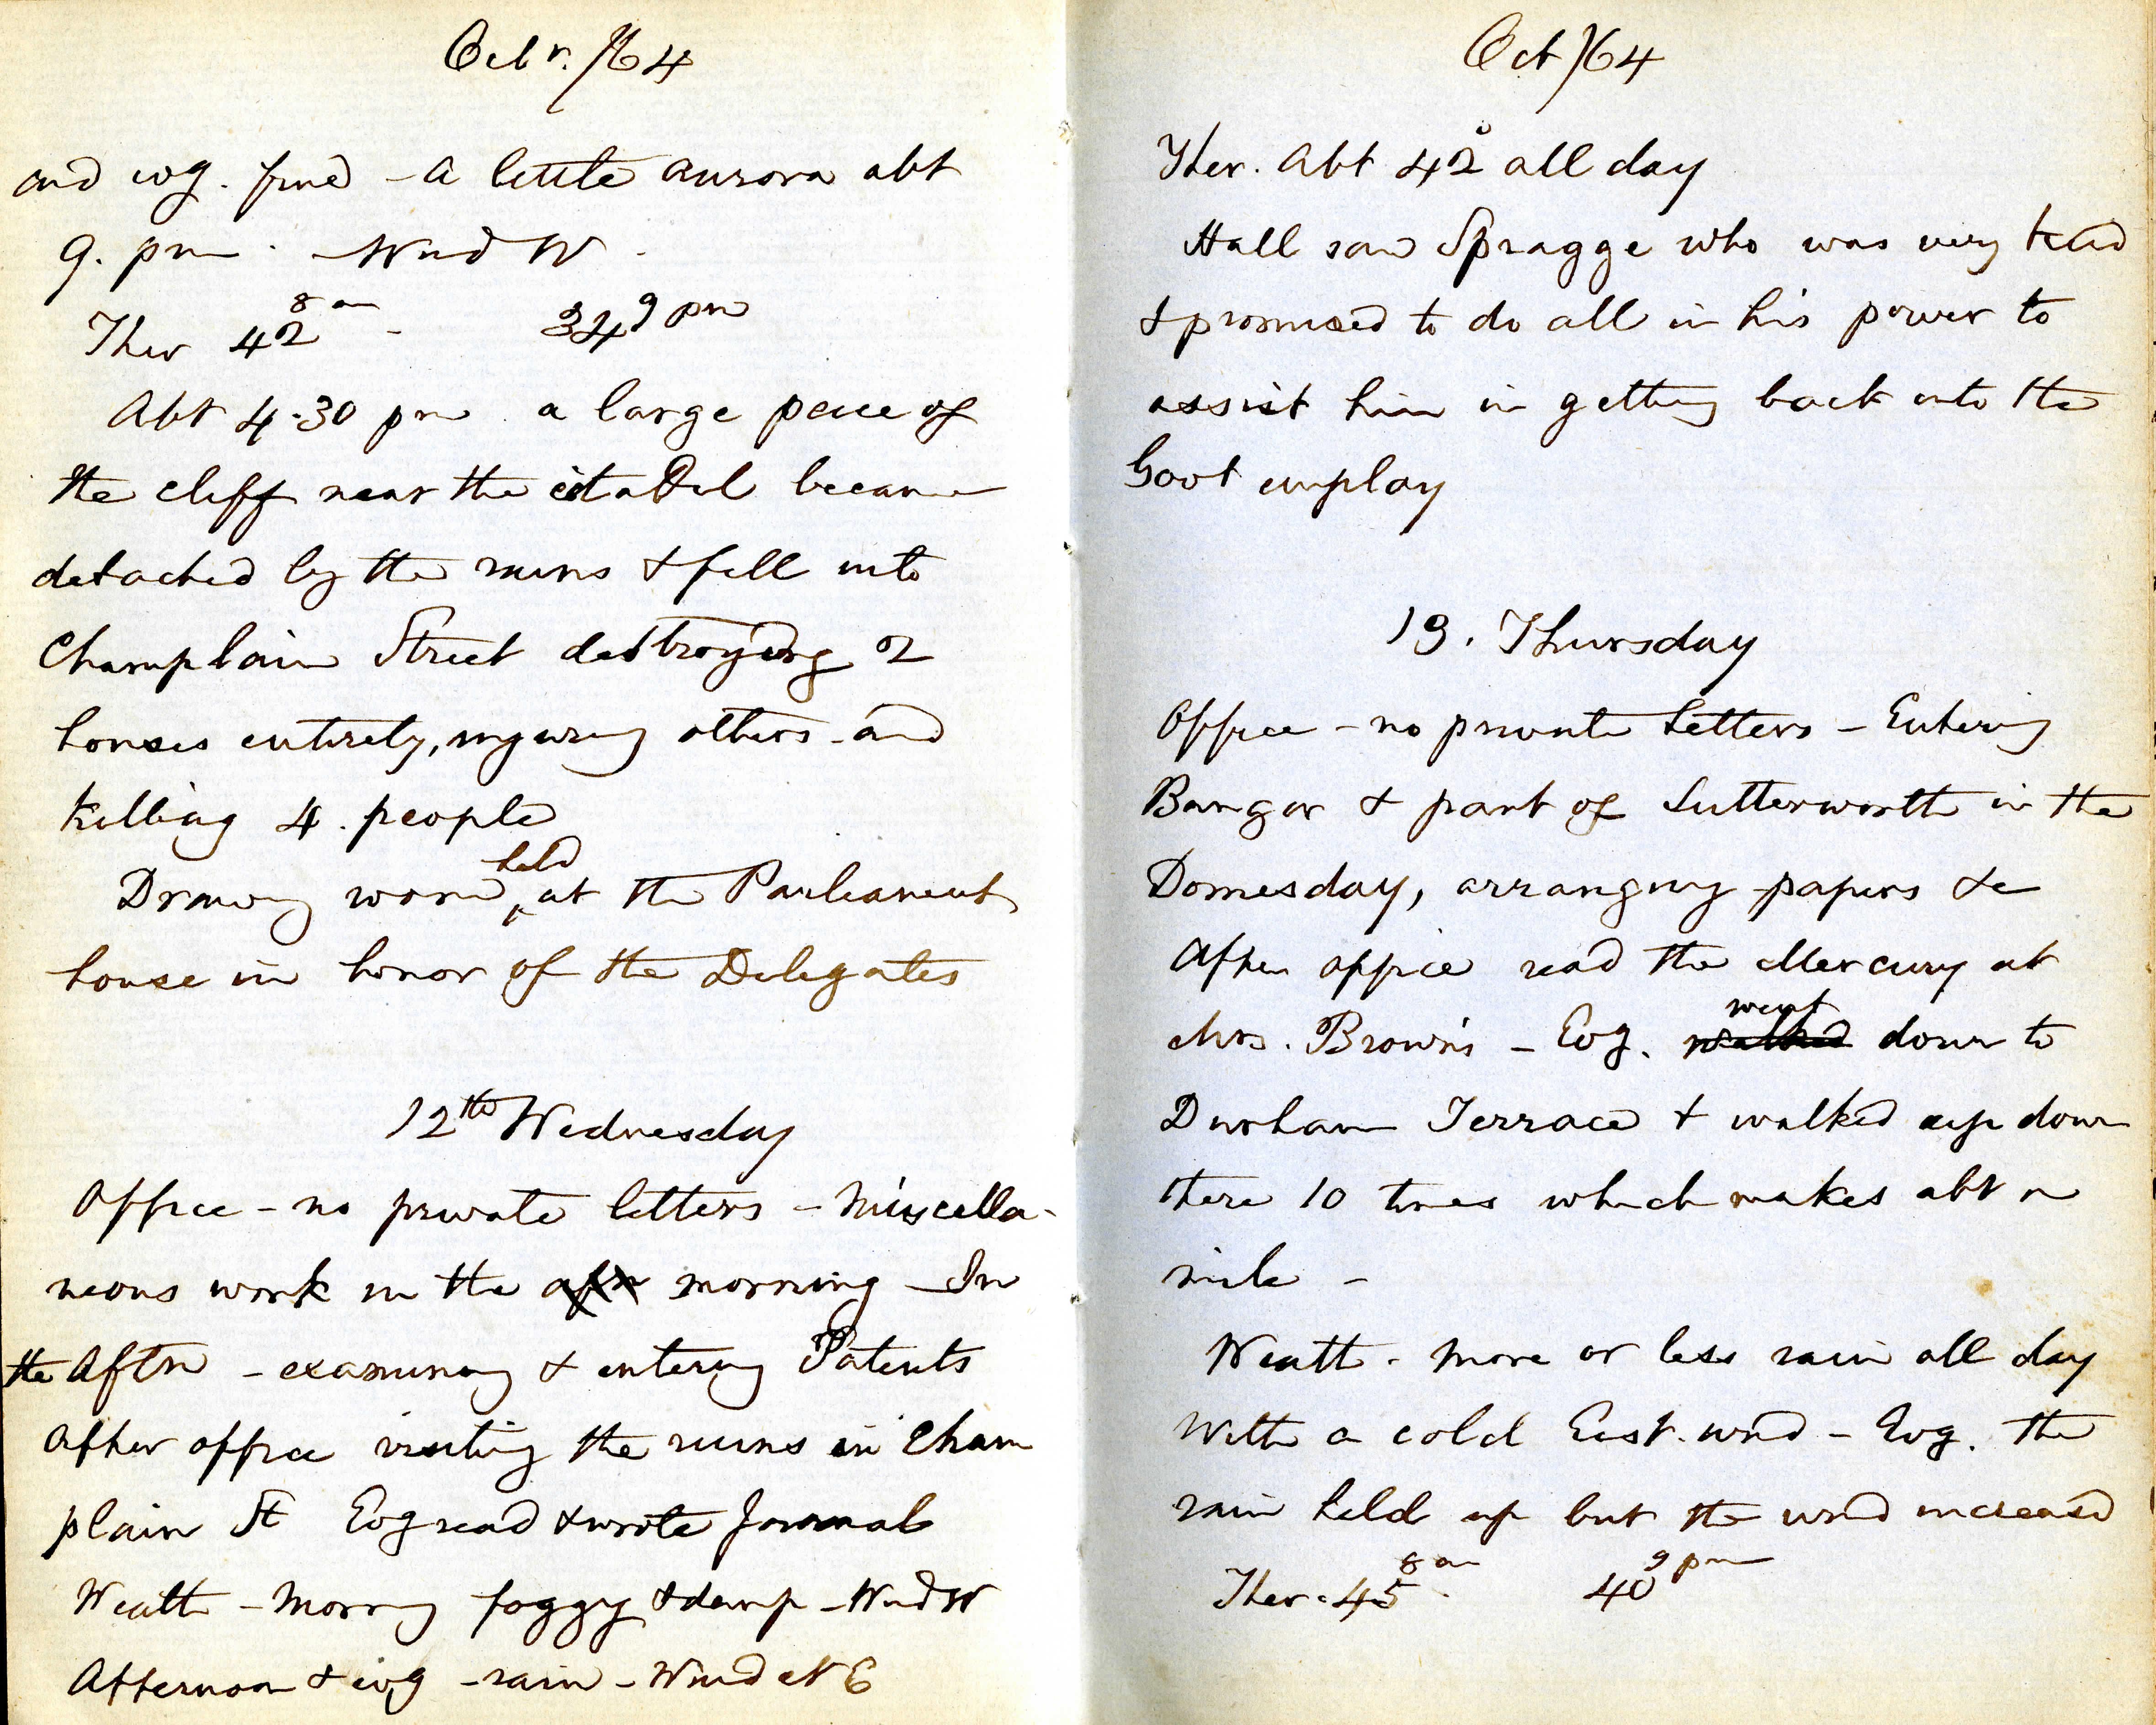 Octr. /64
and evg. fine - a little aurora abt
9. pm. - Wind W.
Ther 42 8 am - 34 9 pm
Abt 4.30 pm a large peice of
the cliff near the citadel became
detached by the rains & fell into
Champlain Street destroying 2
houses entirely, injuring others and
killing 4. people
Drawing room held at the Parliament
house in honor of the Delegates
12th Wednesday
Office - no private letters - Miscella-
neous work in the aftn morning - In
the Aftn - examining & entering Patents
After office visiting the ruins in Cham
plain St Evg read & wrote Journal
Weath - Morning foggy & damp - Wind W
Afternoon & evg - rain - Wind N E
Oct /64
Ther. Abt 42° all day
Hall saw Spragge who was very kind
& promised to do all in his power to
assist him in getting back into the
Govt employ
13. Thursday
Office - no private letters - Entering
Bangor & part of Lutterworth in the
Domesday, arranging papers &c
After office read the Mercury at
Mrs. Brown's - Evg. walked went down to
Durham Terrace & walked up down
there 10 times which makes abt a
mile -
Weath - More or less rain all day
With a cold East wind - Evg. the
rain held up but the wind increased
Ther. 45 8 am. 40 9 pm